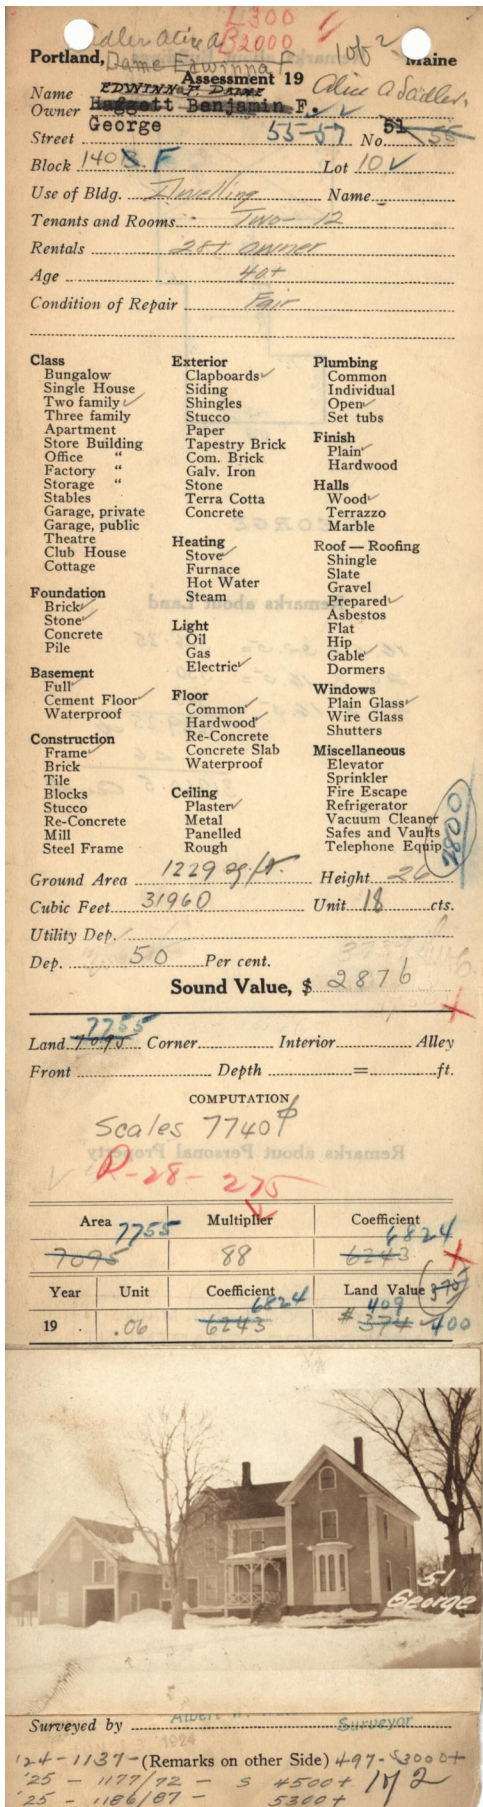 L300
B2000
1 of 2
Portland, Dame Edwinna F Maine
Assessment 19
Name EDWINNA F. DAME Alice A Sadler,
Owner Haggett Benjamin F.
George 55-57 51 55
Street No.
Block 140 F Lot 10
Use of Bldg. Dwelling Name
Tenants and Rooms Two- 12
Rentals 28+ owner
Age 40+
Condition of Repair Fair
Class
Bungalow
Single House
Two family ✓
Three family
Apartment
Store Building
Office "
Factory "
Storage "
Stables
Garage, private
Garage, public
Theatre
Club House
Cottage
Foundation
Brick ✓
Stone ✓
Concrete
Pile
Basement
Full ✓
Cement Floor ✓
Waterproof
Construction
Frame ✓
Brick
Tile
Blocks
Stucco
Re-Concrete
Mill
Steel Frame
Exterior
Clapboards ✓
Siding
Shingles
Stucco
Paper
Tapestry Brick
Com. Brick
Galv. Iron
Stone
Terra Cotta
Concrete
Heating
Stove ✓
Furnace
Hot Water
Steam
Light
Oil
Gas
Electric ✓
Floor
Common ✓
Hardwood ✓
Re-Concrete
Concrete Slab
Waterproof
Ceiling
Plaster ✓
Metal
Panelled
Rough
Plumbing
Common
Individual
Open ✓
Set tubs
Finish
Plain ✓
Hardwood
Halls
Wood ✓
Terrazzo
Marble
Roof — Roofing
Shingle
Slate
Gravel
Prepared ✓
Asbestos
Flat
Hip
Gable ✓
Dormers
Windows
Plain Glass ✓
Wire Glass
Shutters
Miscellaneous
Elevator
Sprinkler
Fire Escape
Refrigerator
Vacuum Cleaner
Safes and Vaults
Telephone Equip.
2800
Ground Area 1229 sq. ft. Height 26
Cubic Feet 31960 Unit 18 cts.
Utility Dep.
Dep. 50 Per cent.
Sound Value, $ 2876
7755
Land 7095 Corner Interior Alley
Front Depth = ft.
COMPUTATION
Scales 7740
R-28- 275
Area Multiplier Coefficient
7755 6824
7095 88 6243
Year Unit Coefficient Land Value 370
6824 409
19 .06 6243 $ 374 400
51
George
Surveyed by Surveyor
1924
'24-1137- (Remarks on other Side) 497-$3000+
'25 - 1177/72 - S 4500+ 1 of 2
'25 - 1186/87 - 5300+